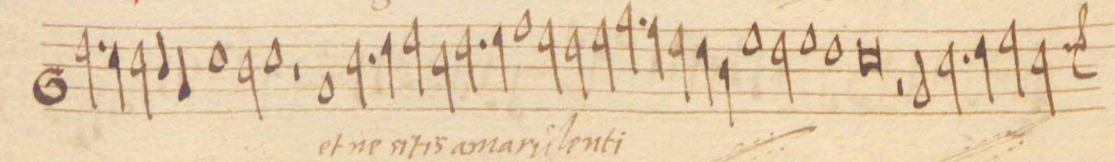 et ne sitis amarulenti